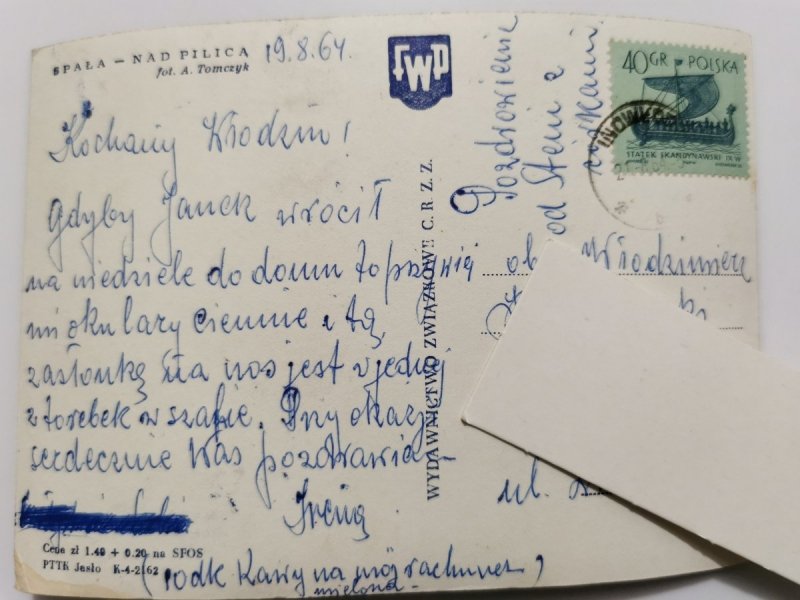 SPAŁA — NAD PILICĄ
fot. A. Tomczyk
19.8.64.
FWP
40 GR POLSKA
STATEK SKANDYNAWSKI IX W
INOWŁ
Kochany Włodziu!
Gdyby Janek wrócił
na niedziele do domu to przywieź
mi okulary ciemne z tą
zasłonką na nos jest w jednej
z torebek w szafie. Przy okazji
serdecznie Was pozdrawia
Irena
Cena zł 1.40 + 0.20 na SFOS
PTTK Jasło K-4-2162
( kawy na mój rachunek )
mielona
WYDAWNICTWO ZWIĄZKOWE C. R. Z. Z.
Pozdrowienia
od Steni z
ob. Włodzimierz
ul.